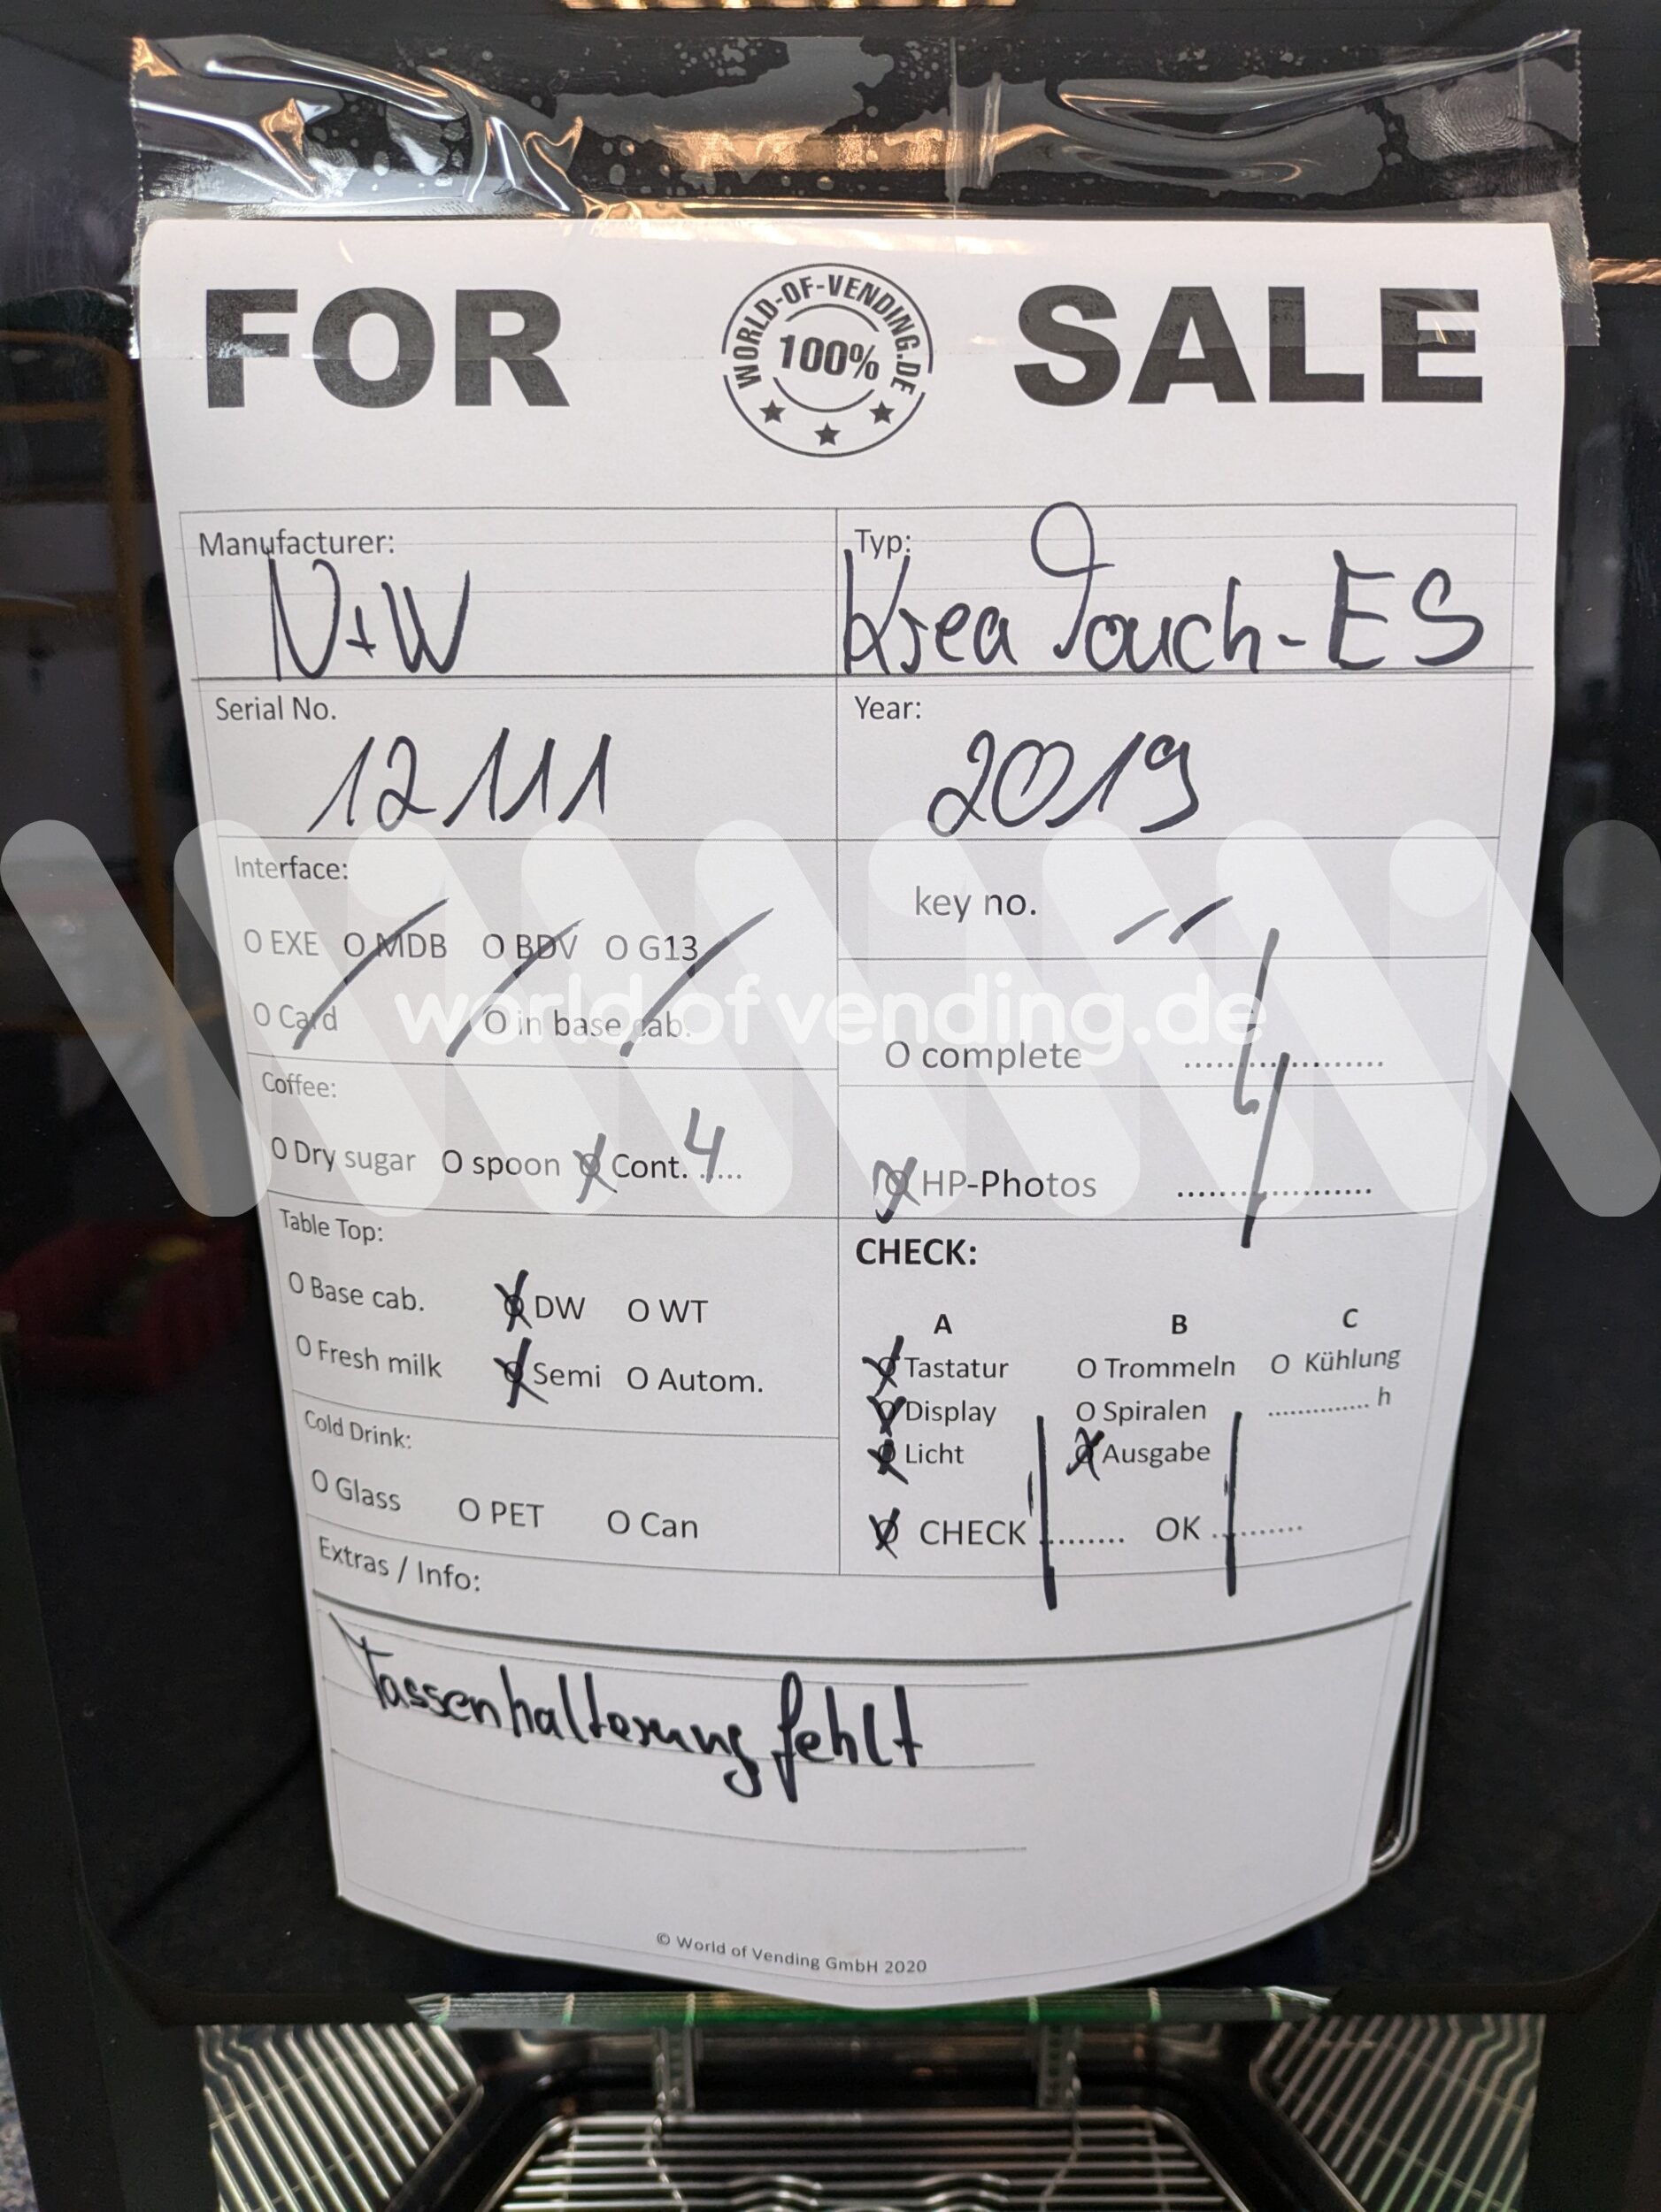 FOR SALE
WORLD-OF-VENDING.DE
100%
Manufacturer: Typ:
N+W Krea Touch-ES
Serial No. Year:
12111 2019
Interface:
key no. "
O EXE O MDB O BDV O G13
O Card O in base cab.
world of vending.de
O complete ..................
Coffee:
O Dry sugar O spoon O Cont. 4
O HP-Photos ..................
Table Top:
O Base cab. O DW O WT
O Fresh milk O Semi O Autom.
CHECK:
A B C
O Tastatur O Trommeln O Kühlung
O Display O Spiralen .............. h
O Licht O Ausgabe
O CHECK ......... OK ..........
Cold Drink:
O Glass O PET O Can
Extras / Info:
Tassenhalterung fehlt
© World of Vending GmbH 2020